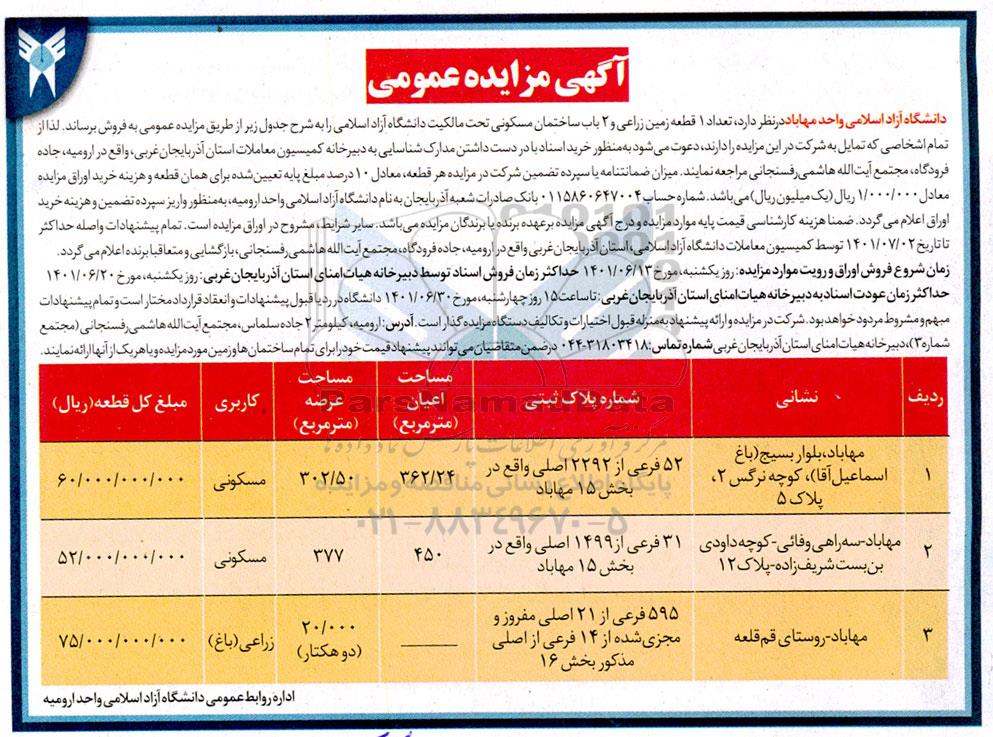 آگهی مزایده عمومی
دانشگاه آزاد اسلامی واحد مهاباد درنظر دارد، تعداد ۱ قطعه زمین زراعی و ۲ باب ساختمان مسکونی تحت مالکیت دانشگاه آزاد اسلامی را به شرح جدول زیر از طریق مزایده عمومی به فروش برساند. لذا از
تمام اشخاصی که تمایل به شرکت در این مزایده را دارند، دعوت می‌شود به‌منظور خرید اسناد با در دست داشتن مدارک شناسایی به دبیرخانه کمیسیون معاملات استان آذربایجان‌غربی، واقع در ارومیه، جاده
فرودگاه، مجتمع آیت‌الله هاشمی رفسنجانی مراجعه نمایند. میزان ضمانتنامه یا سپرده تضمین شرکت در مزایده هر قطعه، معادل ۱۰ درصد مبلغ پایه تعیین‌شده برای همان قطعه و هزینه خرید اوراق مزایده
معادل ۱/۰۰۰/۰۰۰ ریال (یک میلیون ریال) می‌باشد. شماره حساب ۰۱۱۵۸۶۰۶۴۷۰۰۴ بانک صادرات شعبه آذربایجان به نام دانشگاه آزاد اسلامی واحد ارومیه، به‌منظور واریز سپرده تضمین و هزینه خرید
اوراق اعلام می گردد. ضمنا هزینه کارشناسی قیمت پایه موارد مزایده و درج آگهی مزایده برعهده برنده یا برندگان مزایده می‌باشد. سایر شرایط مشروح در اوراق مزایده است. تمام پیشنهادات واصله حداکثر
تا تاریخ ۱۴۰۱/۰۷/۰۲ توسط کمیسیون معاملات دانشگاه آزاد اسلامی، استان آذربایجان غربی واقع در ارومیه، جاده فرودگاه، مجتمع آیت الله هاشمی رفسنجانی، بازگشایی و متعاقبا برنده اعلام می گردد.
زمان شروع فروش اوراق و رویت موارد مزایده: روز یکشنبه، مورخ ۱۴۰۱/۰۶/۱۳ حداکثر زمان فروش اسناد توسط دبیرخانه هیات امنای استان آذربایجان غربی: روز یکشنبه، مورخ ۱۴۰۱/۰۶/۲۰
حداکثر زمان عودت اسناد به دبیرخانه هیات امنای استان آذربایجان غربی: تا ساعت ۱۵ روز چهارشنبه، مورخ ۱۴۰۱/۰۶/۳۰ دانشگاه در رد یا قبول پیشنهادات و انعقاد قرارداد مختار است و تمام پیشنهادات
مبهم و مشروط مردود خواهد بود. شرکت در مزایده و ارائه پیشنهاد به منزله قبول اختیارات و تکالیف دستگاه مزایده گذار است. آدرس: ارومیه، کیلومتر ۲ جاده سلماس، مجتمع آیت الله هاشمی رفسنجانی (مجتمع
شماره ۳)، دبیرخانه هیات امنای استان آذربایجان غربی شماره تماس: ۳۱۸۰۳۴۱۸-۰۴۴ درضمن متقاضیان می توانند پیشنهاد قیمت خود را برای تمام ساختمان ها و زمین مورد مزایده و یا هر یک از آنها ارائه نمایند.
ردیف نشانی شماره پلاک ثبتی مساحت اعیان (مترمربع) مساحت عرصه (مترمربع) کاربری مبلغ کل قطعه (ریال)
۱ مهاباد، بلوار بسیج (باغ اسماعیل آقا)، کوچه نرگس ۲، پلاک ۵ ۵۲ فرعی از ۲۲۹۲ اصلی واقع در بخش ۱۵ مهاباد ۳۶۲/۲۴ ۳۰۲/۵۰ مسکونی ۶۰/۰۰۰/۰۰۰/۰۰۰
۲ مهاباد-سه راهی وفائی-کوچه داودی بن بست شریف زاده-پلاک ۱۲ ۳۱ فرعی از ۱۴۹۹ اصلی واقع در بخش ۱۵ مهاباد ۴۵۰ ۳۷۷ مسکونی ۵۲/۰۰۰/۰۰۰/۰۰۰
۳ مهاباد-روستای قم قلعه ۵۹۵ فرعی از ۲۱ اصلی مفروز و مجزی شده از ۱۴ فرعی از اصلی مذکور بخش ۱۶ ——— ۲۰/۰۰۰ (دو هکتار) زراعی (باغ) ۷۵/۰۰۰/۰۰۰/۰۰۰
اداره روابط عمومی دانشگاه آزاد اسلامی واحد ارومیه
ParsNamadData
مرکز فرآوری اطلاعات پارس نماد داده ها
پایگاه اطلاع رسانی مناقصه و مزایده
۰۲۱-۸۸۳۴۹۶۷۰-۵